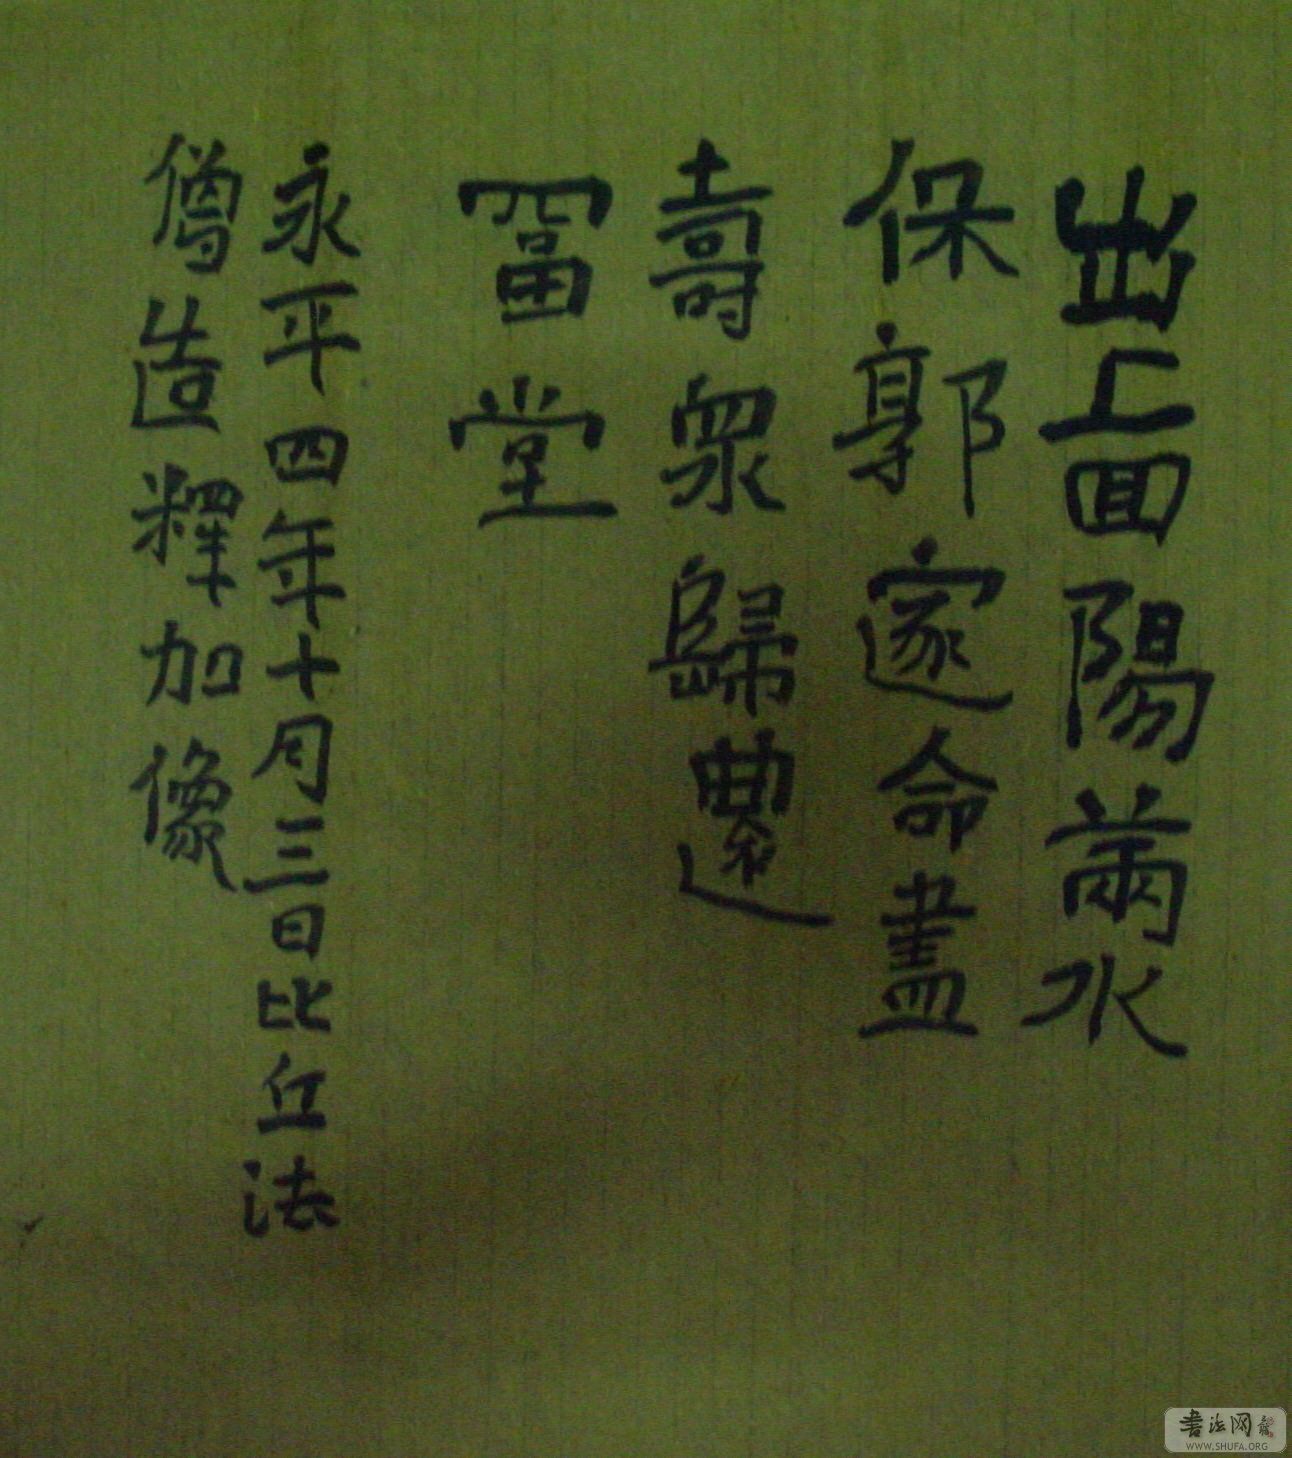 出上面陽兩水
保郭家命盡
壽衆歸遷
富堂
永平四年十月三日比丘法
僧造釋加像
書法网
WWW.SHUFA.ORG